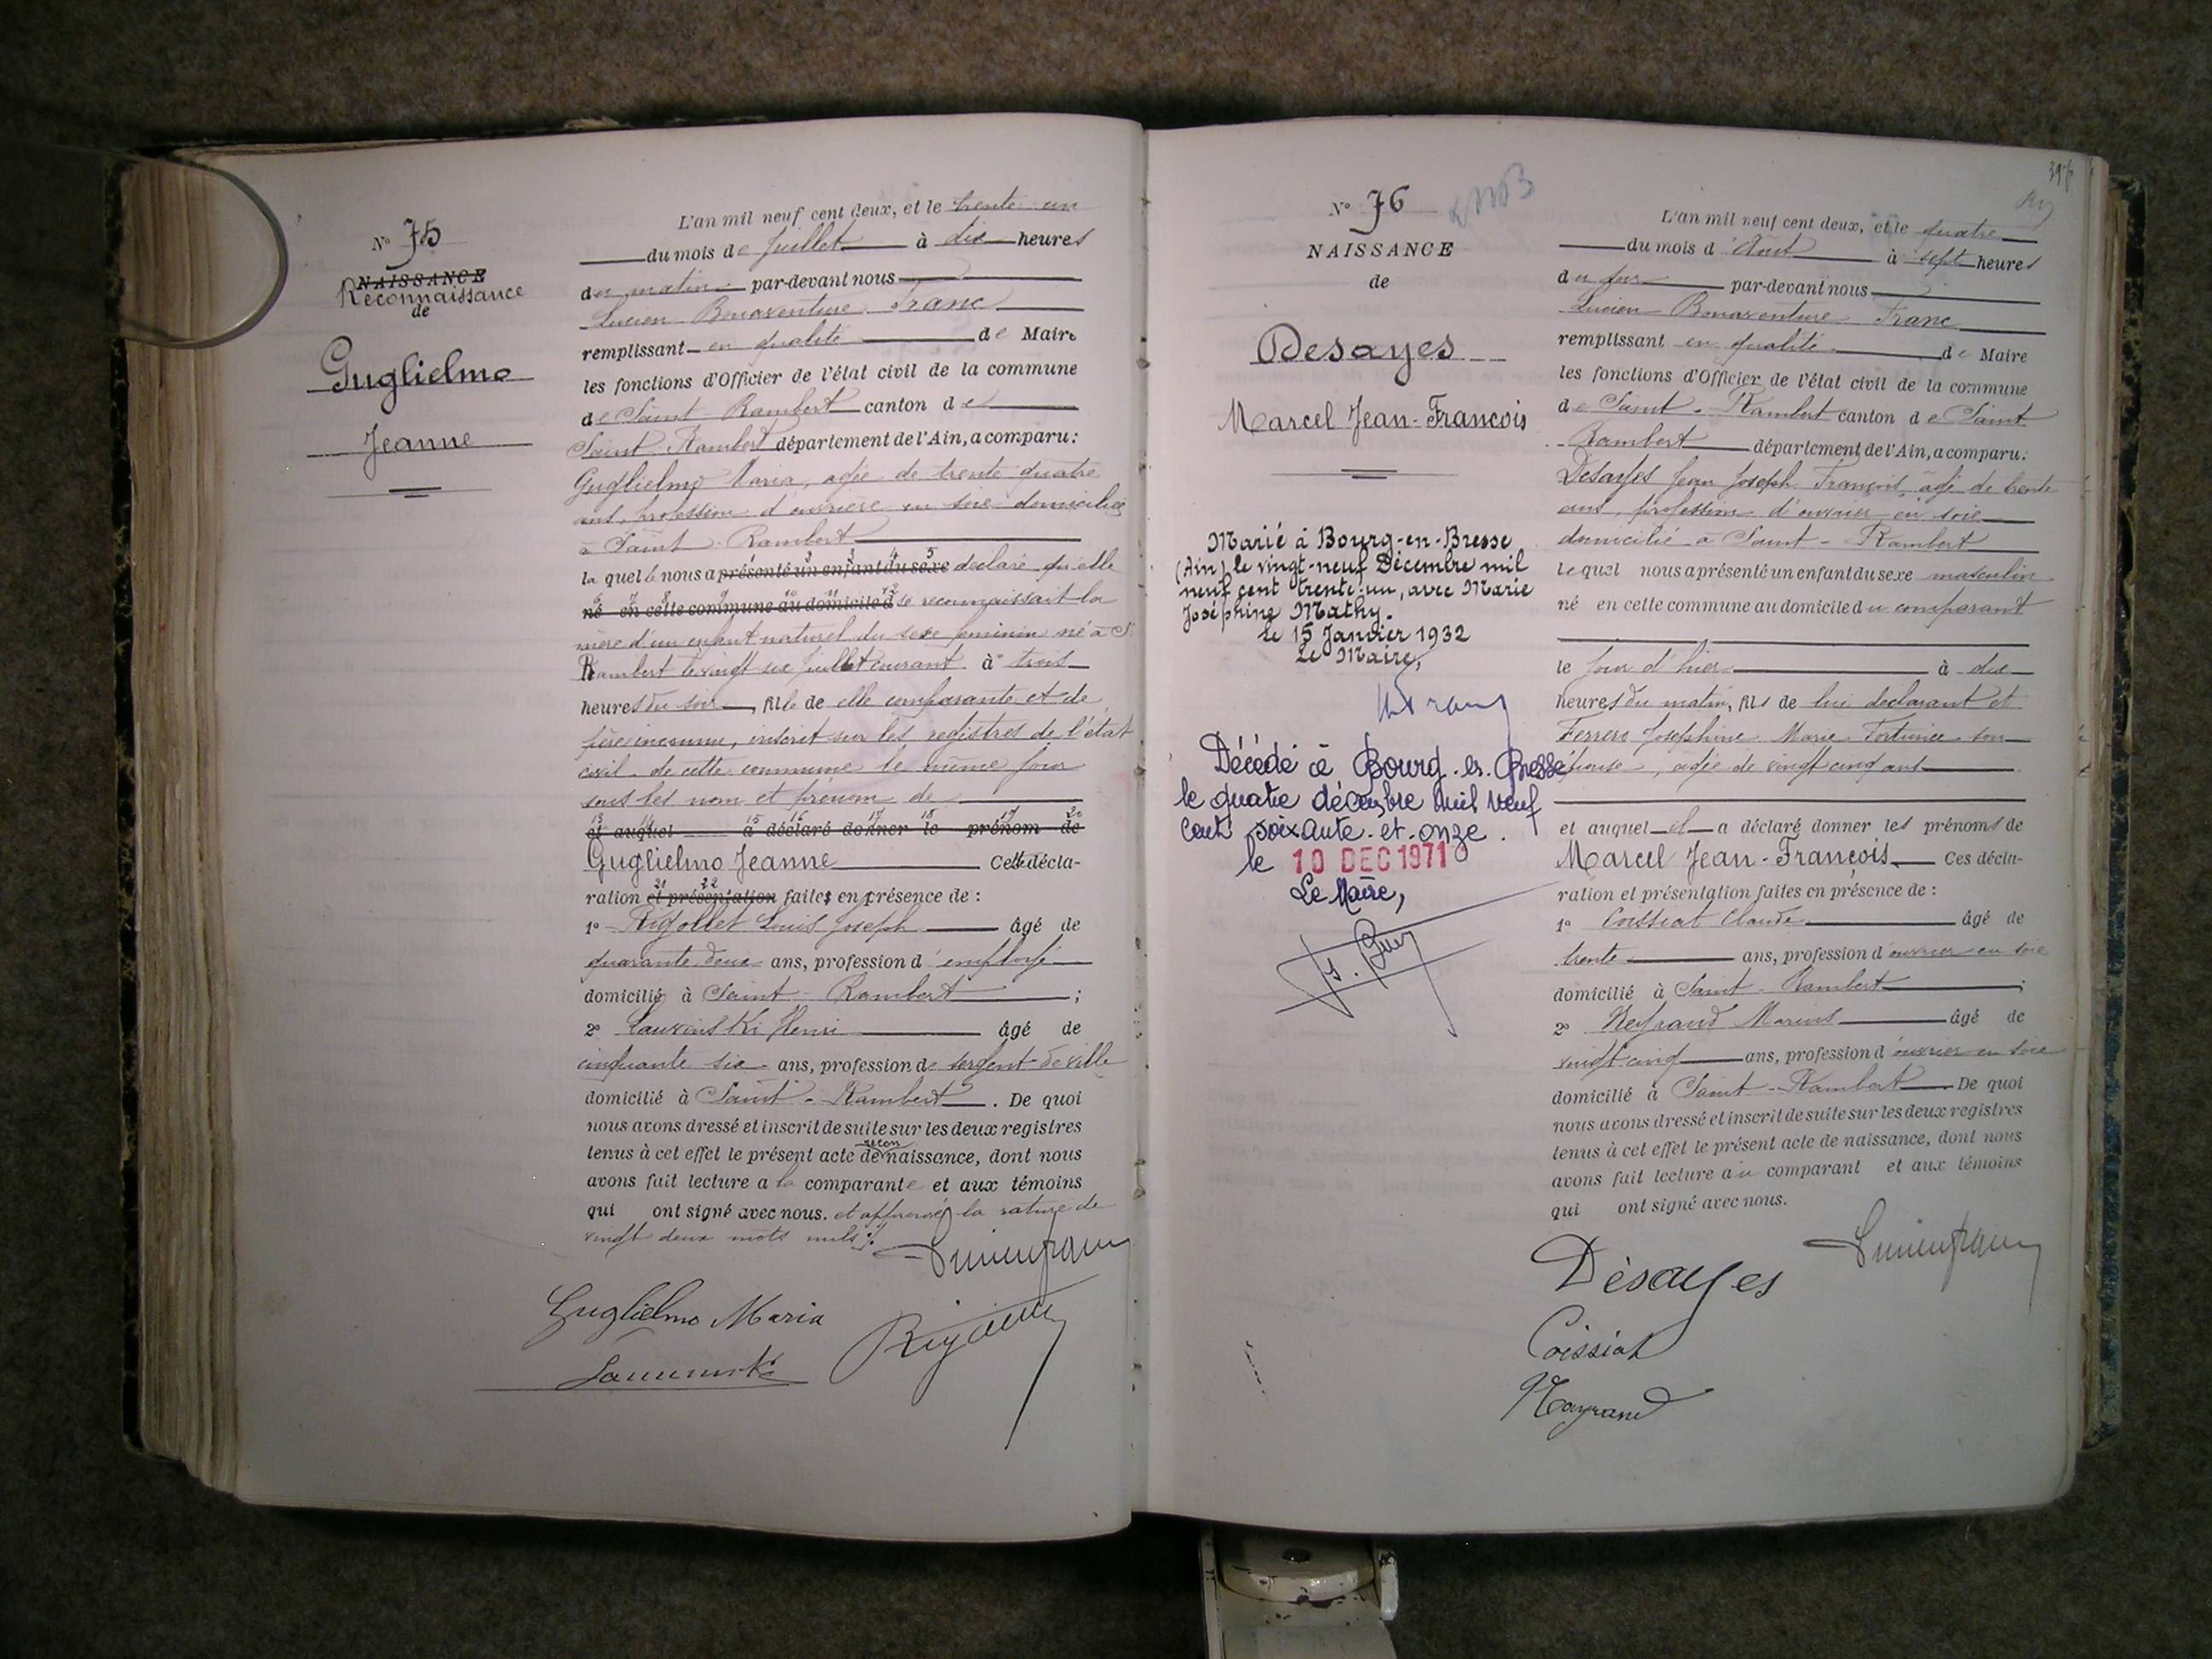 N° 75
NAISSANCE
Reconnaissance
de
Guglielmo
Jeanne
L'an mil neuf cent deux, et le trente un
du mois de Juillet à dix heures
du matin par-devant nous
Lucien Bonaventure Franc
remplissant en qualité de Maire
les fonctions d'Officier de l'état civil de la commune
de Saint-Rambert canton de
Saint-Rambert département de l'Ain, a comparu:
Guglielmo Maria, agée de trente quatre
ans, profession d'ouvrière en soie domiciliée
à Saint-Rambert
la quelle nous a présenté un enfant du sexe déclaré qu'elle
né en cette commune au domicile d se reconnaissait la
mère d'un enfant naturel du sexe feminin né à St
Rambert le vingt six juillet courant à trois
heures du soir, fille de elle comparante et de
père inconnu, inscrit sur les registres de l'état
civil de cette commune le même jour
sous les nom et prénom de
et auquel a déclaré donner le prénom de
Guglielmo Jeanne Cette décla-
ration et présentation faites en présence de :
1° Rigollet Louis Joseph âgé de
quarante deux ans, profession d'employé
domicilié à Saint-Rambert ;
2° Henri âgé de
cinquante six ans, profession de sergent de ville
domicilié à Saint-Rambert. De quoi
nous avons dressé et inscrit de suite sur les deux registres
tenus à cet effet le présent acte de reconnaissance, dont nous
avons fait lecture a la comparante et aux témoins
qui ont signé avec nous. et approuvé la rature de
vingt deux mots nuls
Guglielmo Maria
N° 76
NAISSANCE
de
Desayes
Marcel Jean-François
Marié à Bourg-en-Bresse
(Ain) le vingt-neuf Décembre mil
neuf cent trente-un, avec Marie
Joséphine Mathy.
Le 15 Janvier 1932
Le Maire,
Décédé à Bourg-en-Bresse
le quatre décembre mil neuf
cent soixante-et-onze.
le 10 DEC 1971
Le Maire,
L'an mil neuf cent deux, et le quatre
du mois d'Aout à sept heures
du soir par-devant nous
Lucien Bonaventure Franc
remplissant en qualité de Maire
les fonctions d'Officier de l'état civil de la commune
de Saint-Rambert canton de Saint
Rambert département de l'Ain, a comparu:
Desayes Jean Joseph François, âgé de trente
ans, profession d'ouvrier en soie
domicilié à Saint-Rambert
lequel nous a présenté un enfant du sexe masculin
né en cette commune au domicile du comparant
le jour d'hier à dix
heures du matin, fils de lui déclarant et
Ferrero Joséphine Marie Fortunée son
épouse, agée de vingt cinq ans
et auquel il a déclaré donner les prénoms de
Marcel Jean-François Ces décla-
ration et présentation faites en présence de :
1° Coissiat Claude âgé de
trente ans, profession d'ouvrier en soie
domicilié à Saint-Rambert ;
2° Neyrand Marius âgé de
vingt cinq ans, profession d'ouvrier en soie
domicilié à Saint-Rambert. De quoi
nous avons dressé et inscrit de suite sur les deux registres
tenus à cet effet le présent acte de naissance, dont nous
avons fait lecture au comparant et aux témoins
qui ont signé avec nous.
Désayes
Coissiat
Neyrand